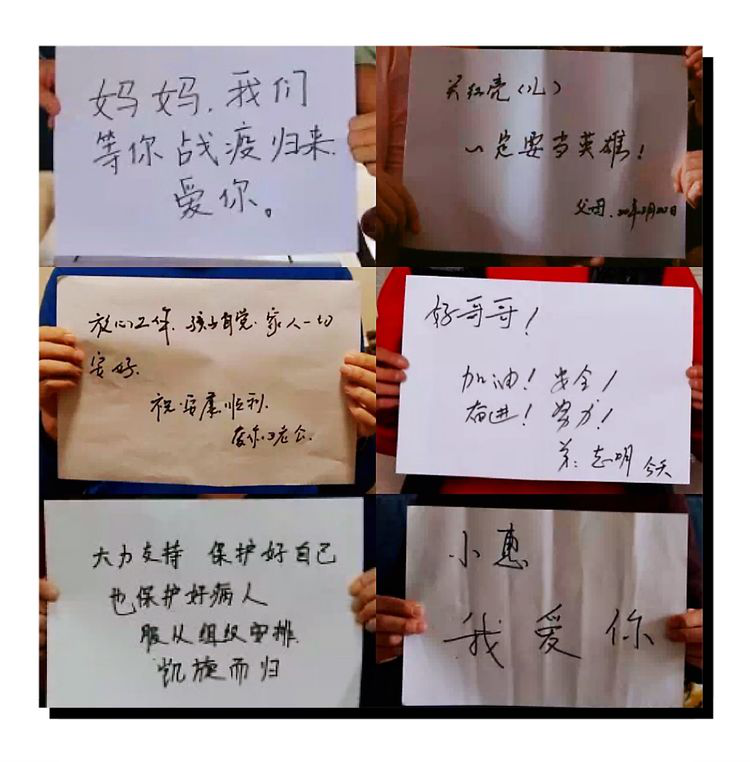 妈妈，我们
等你战疫归来
爱你。
关红亮（儿）
一定要当英雄！
父母
放心工作，孩子自觉，家人一切
安好。
祝：安康顺利
爱你的老公
好哥哥！
加油！安全！
奋进！努力！
弟：志明 今天
大力支持 保护好自己
也保护好病人
服从组织安排
凯旋而归
小惠
我爱你